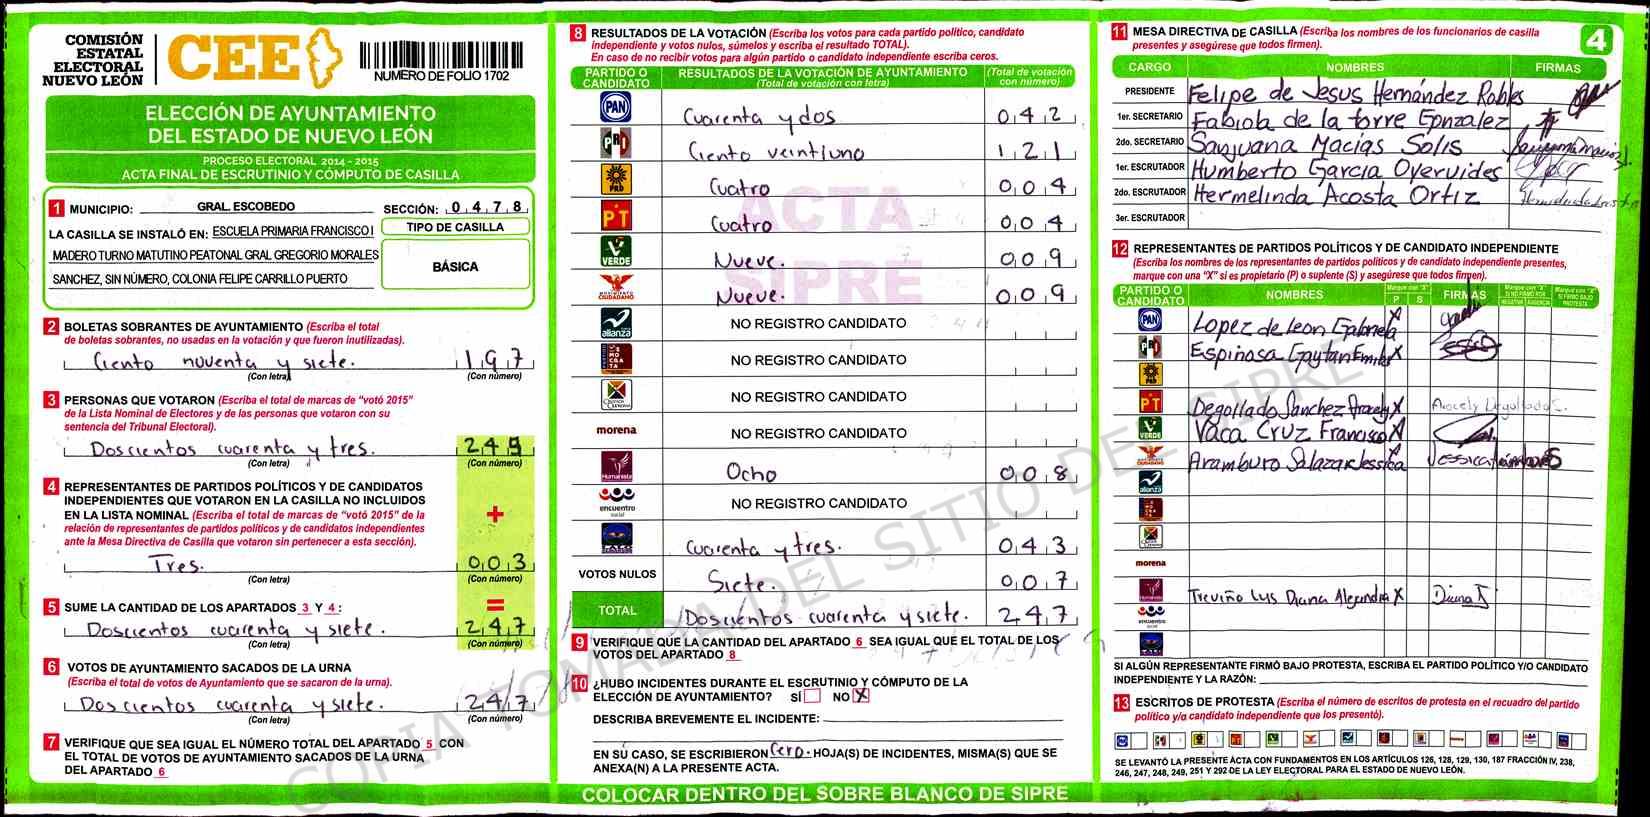 COMISIÓN
ESTATAL
ELECTORAL
NUEVO LEÓN
CEE
NUMERO DE FOLIO 1702
ELECCIÓN DE AYUNTAMIENTO
DEL ESTADO DE NUEVO LEÓN
PROCESO ELECTORAL 2014 - 2015
ACTA FINAL DE ESCRUTINIO Y CÓMPUTO DE CASILLA
1 MUNICIPIO: GRAL. ESCOBEDO SECCIÓN: 0 4 7 8
LA CASILLA SE INSTALÓ EN: ESCUELA PRIMARIA FRANCISCO I
MADERO TURNO MATUTINO PEATONAL GRAL GREGORIO MORALES
SANCHEZ, SIN NÚMERO, COLONIA FELIPE CARRILLO PUERTO
TIPO DE CASILLA
BÁSICA
2 BOLETAS SOBRANTES DE AYUNTAMIENTO (Escriba el total
de boletas sobrantes, no usadas en la votación y que fueron inutilizadas).
Ciento noventa y siete. 1 9 7
(Con letra) (Con número)
3 PERSONAS QUE VOTARON (Escriba el total de marcas de "votó 2015"
de la Lista Nominal de Electores y de las personas que votaron con su
sentencia del Tribunal Electoral).
Doscientos cuarenta y tres. 2 4
(Con letra) (Con número)
4 REPRESENTANTES DE PARTIDOS POLÍTICOS Y DE CANDIDATOS
INDEPENDIENTES QUE VOTARON EN LA CASILLA NO INCLUIDOS
EN LA LISTA NOMINAL (Escriba el total de marcas de "votó 2015" de la
relación de representantes de partidos políticos y de candidatos independientes
ante la Mesa Directiva de Casilla que votaron sin pertenecer a esta sección).
+
Tres. 0 0 3
(Con letra) (Con número)
=
5 SUME LA CANTIDAD DE LOS APARTADOS 3 Y 4:
Doscientos cuarenta y siete. 2 4 7
(Con letra) (Con número)
6 VOTOS DE AYUNTAMIENTO SACADOS DE LA URNA
(Escriba el total de votos de Ayuntamiento que se sacaron de la urna).
Doscientos cuarenta y siete. 2 4 7
(Con letra) (Con número)
7 VERIFIQUE QUE SEA IGUAL EL NÚMERO TOTAL DEL APARTADO 5 CON
EL TOTAL DE VOTOS DE AYUNTAMIENTO SACADOS DE LA URNA
DEL APARTADO 6
8 RESULTADOS DE LA VOTACIÓN (Escriba los votos para cada partido político, candidato
independiente y votos nulos, súmelos y escriba el resultado TOTAL).
En caso de no recibir votos para algún partido o candidato independiente escriba ceros.
PARTIDO O CANDIDATO
RESULTADOS DE LA VOTACIÓN DE AYUNTAMIENTO
(Total de votación con letra)
(Total de votación con número)
PAN Cuarenta y dos 0 4 2
PRI Ciento veintiuno 1 2 1
PRD Cuatro 0 0 4
PT Cuatro 0 0 4
VERDE Nueve. 0 0 9
MOVIMIENTO CIUDADANO Nueve. 0 0 9
alianza NO REGISTRO CANDIDATO
NO REGISTRO CANDIDATO
NO REGISTRO CANDIDATO
morena NO REGISTRO CANDIDATO
Humanista Ocho 0 0 8
encuentro social NO REGISTRO CANDIDATO
Cuarenta y tres. 0 4 3
VOTOS NULOS Siete. 0 0 7
TOTAL Doscientos cuarenta y siete. 2 4 7
ACTA
SIPRE
9 VERIFIQUE QUE LA CANTIDAD DEL APARTADO 6 SEA IGUAL QUE EL TOTAL DE LOS
VOTOS DEL APARTADO 8
10 ¿HUBO INCIDENTES DURANTE EL ESCRUTINIO Y CÓMPUTO DE LA
ELECCIÓN DE AYUNTAMIENTO? SÍ NO X
DESCRIBA BREVEMENTE EL INCIDENTE:
EN SU CASO, SE ESCRIBIERON Cero. HOJA(S) DE INCIDENTES, MISMA(S) QUE SE
ANEXA(N) A LA PRESENTE ACTA.
COLOCAR DENTRO DEL SOBRE BLANCO DE SIPRE
11 MESA DIRECTIVA DE CASILLA (Escriba los nombres de los funcionarios de casilla
presentes y asegúrese que todos firmen).
4
CARGO NOMBRES FIRMAS
PRESIDENTE Felipe de Jesus Hernández Robles
1er. SECRETARIO Fabiola de la torre Gonzalez
2do. SECRETARIO Sanjuana Macias Solis
1er. ESCRUTADOR Humberto Garcia Oyervides
2do. ESCRUTADOR Hermelinda Acosta Ortiz
3er. ESCRUTADOR
12 REPRESENTANTES DE PARTIDOS POLÍTICOS Y DE CANDIDATO INDEPENDIENTE
(Escriba los nombres de los representantes de partidos políticos y de candidato independiente presentes,
marque con una "X" si es propietario (P) o suplente (S) y asegúrese que todos firmen).
PARTIDO O CANDIDATO NOMBRES P S FIRMAS
PAN Lopez de Leon Gabriela X
PRI Espinosa Gaytan Emilio X
PRD
PT Degollado Sanchez Aracely X
VERDE Vaca Cruz Francisco X
Aramburo Salazar Jessica
alianza
morena
Humanista Treviño Luis Diana Alejandra X Diana T
encuentro social
SI ALGÚN REPRESENTANTE FIRMÓ BAJO PROTESTA, ESCRIBA EL PARTIDO POLÍTICO Y/O CANDIDATO
INDEPENDIENTE Y LA RAZÓN:
13 ESCRITOS DE PROTESTA (Escriba el número de escritos de protesta en el recuadro del partido
político y/o candidato independiente que los presentó).
SE LEVANTÓ LA PRESENTE ACTA CON FUNDAMENTOS EN LOS ARTÍCULOS 126, 128, 129, 130, 187 FRACCIÓN IV, 238,
246, 247, 248, 249, 251 Y 292 DE LA LEY ELECTORAL PARA EL ESTADO DE NUEVO LEÓN.
COPIA TOMADA DEL SITIO DEL SIPRE